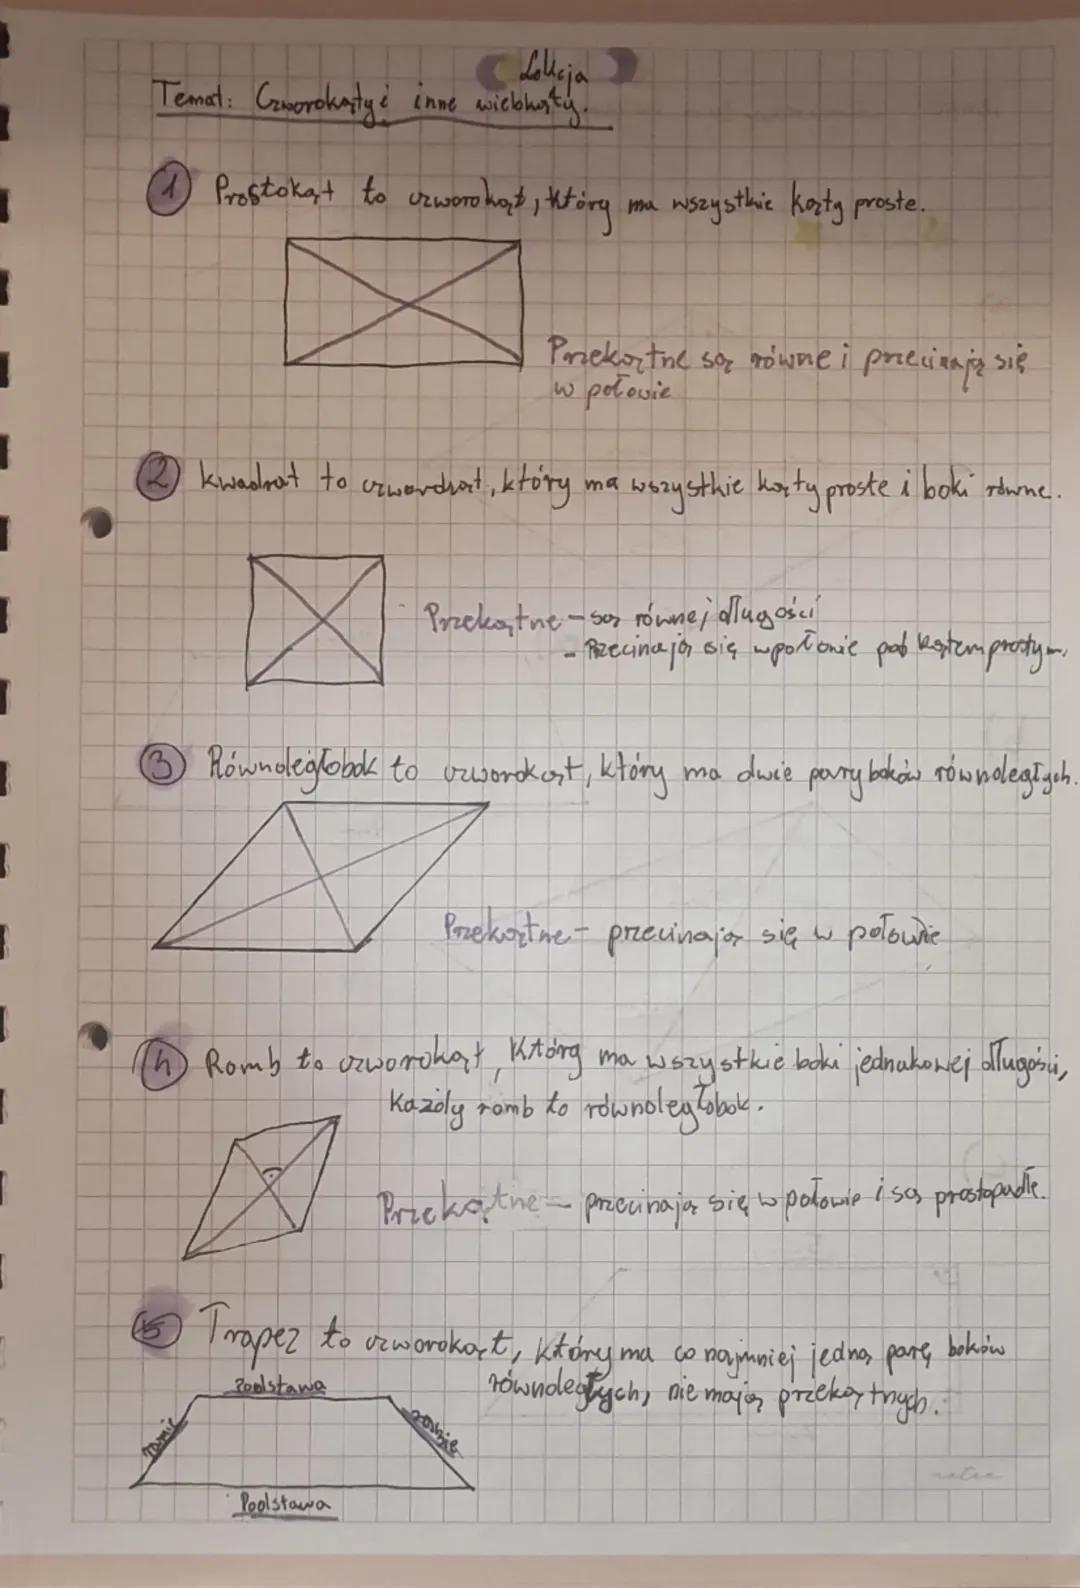 Lekcja
Temat: Czworokąty i inne wielokąty.
1 Prostokąt to czworokąt, który ma wszystkie kąty proste.
Przekątne są równe i przecinają się
w połowie
2 kwadrat to czworokąt, który ma wszystkie kąty proste i boki równe.
Przekątne - są równej długości
- Przecinają się w połowie pod kątem prostym.
3 Równoległobok to czworokąt, który ma dwie pary boków równoległych.
Przekątne - przecinają się w połowie
4 Romb to czworokąt, który ma wszystkie boki jednakowej długości,
Każdy romb to równoległobok.
Przekątne - przecinają się w połowie i są prostopadłe.
5 Trapez to czworokąt, który ma co najmniej jedną parę boków
równoległych, nie mają przekątnych.
Podstawa
ramię
ramię
Podstawa